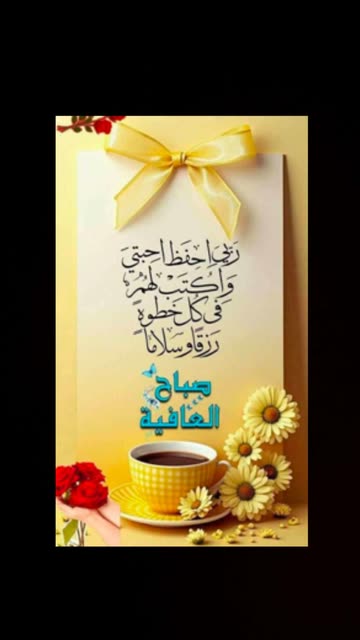 رَبِّي احْفَظْ احِبَّتِي
وَاكْتُبْ لَهُمْ
فِي كُلِّ خَطْوَةٍ
رِزْقًا وَسَلَامًا
صباح
العافية